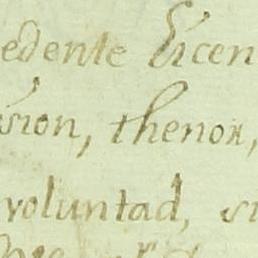 edente Licen
sion, thenor,
voluntad, si